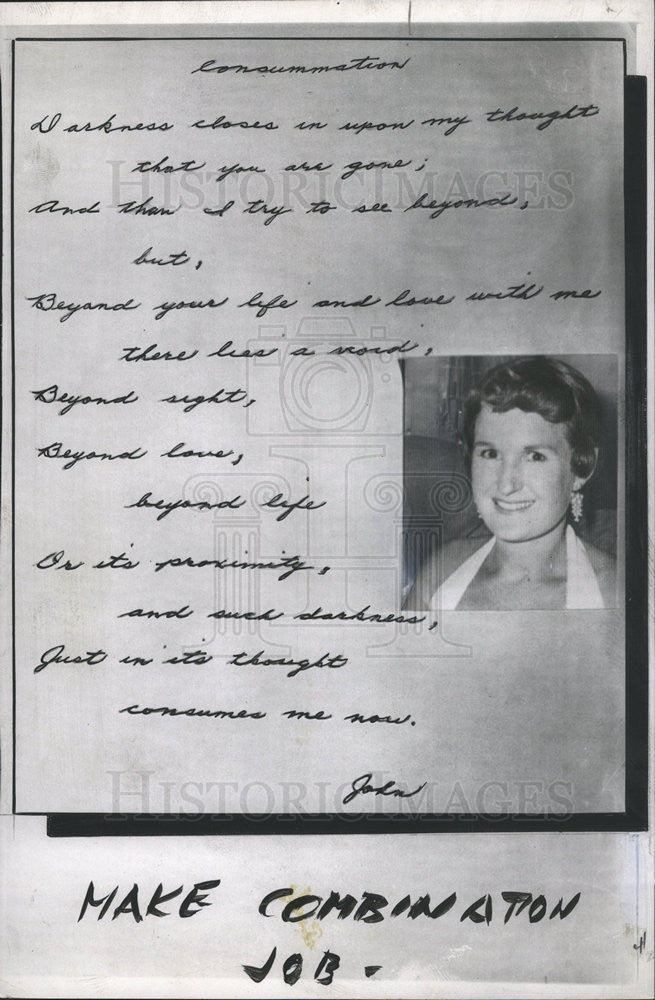 Consummation
Darkness closes in upon my thought
that you are gone;
And than I try to see beyond,
but,
Beyond your life and love with me
there lies a void,
Beyond sight,
Beyond love,
beyond life
Or it's proximity,
and such darkness,
Just in it's thought
consumes me now.
John
HISTORICIMAGES
HISTORICIMAGES
MAKE COMBINATION
JOB -